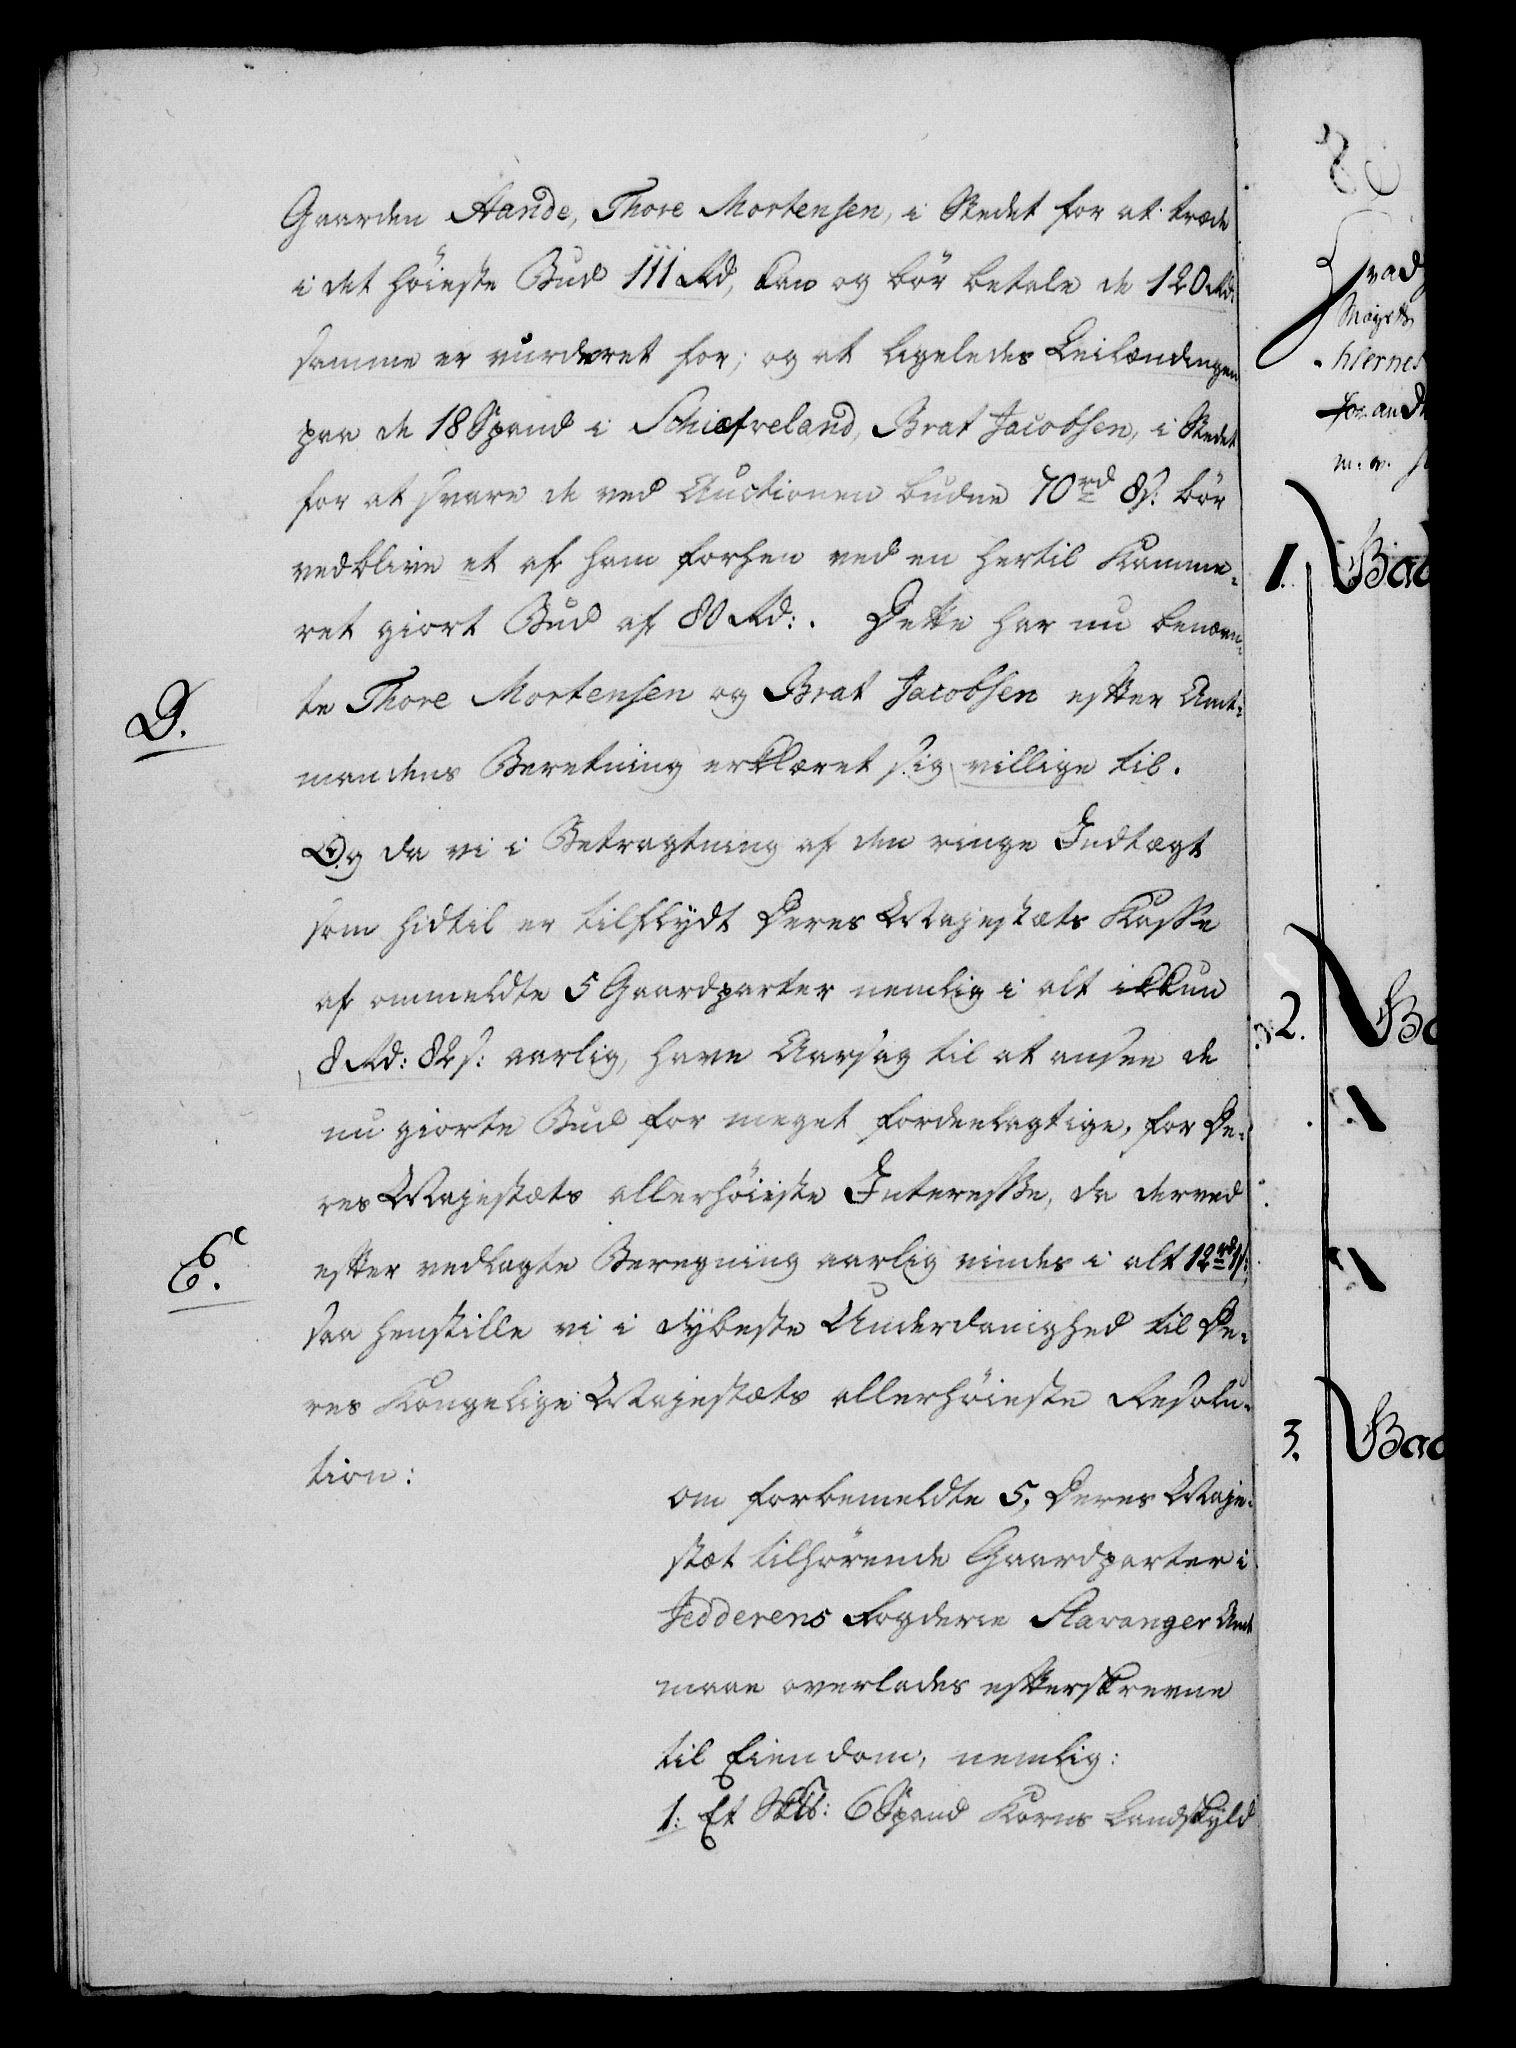 Gaarden Aande, Thore Mortensen, i Stedet for at træde
i det høieste Bud 111 Rd, kan og bör betale de 120 Rd:
samme er vurderet for; og at ligeledes Leilændingen
paa de 18 Spand i Schiefveland, Brat Jacobsen, i Stedet
for at svare de ved Auctionen budne 70rd 8s: bör
vedblive et af ham forhen ved en hertil Kamme-
ret giort Bud af 80 Rd:. Dette har nu benævn-
D.
te Thore Mortensen og Brat Jacobsen efter Amt-
mandens Beretning erklæret sig villige til.
Og da vi i Betragtning af den ringe Indtægt
som hidtil er tilflydt Deres Majestæts Kasse
af ommeldte 5 Gaardparter nemlig i alt ikkun
8 Rd: 82 s: aarlig, have Aarsag til at ansee de
nu giorte Bud for meget fordeelagtige, for De-
res Majestæts allerhöieste Interesse, da derved
E.
efter vedlagte Beregning aarlig vindes i alt 12rd 1s:
saa henstille vi i dybeste Underdanighed til De-
res Kongelige Majestæts allerhöieste Resolu-
tion:
om forbemeldte 5, Deres Maje-
stæt tilhörende Gaardparter i
Jedderens Fogderie Stavanger Amt
maae overlades efterskrevne
til Eiendom, nemlig:
1: Et Skлb: 6 Spand Korns Landskyld
1. Bac
2. Ba
3. Bac